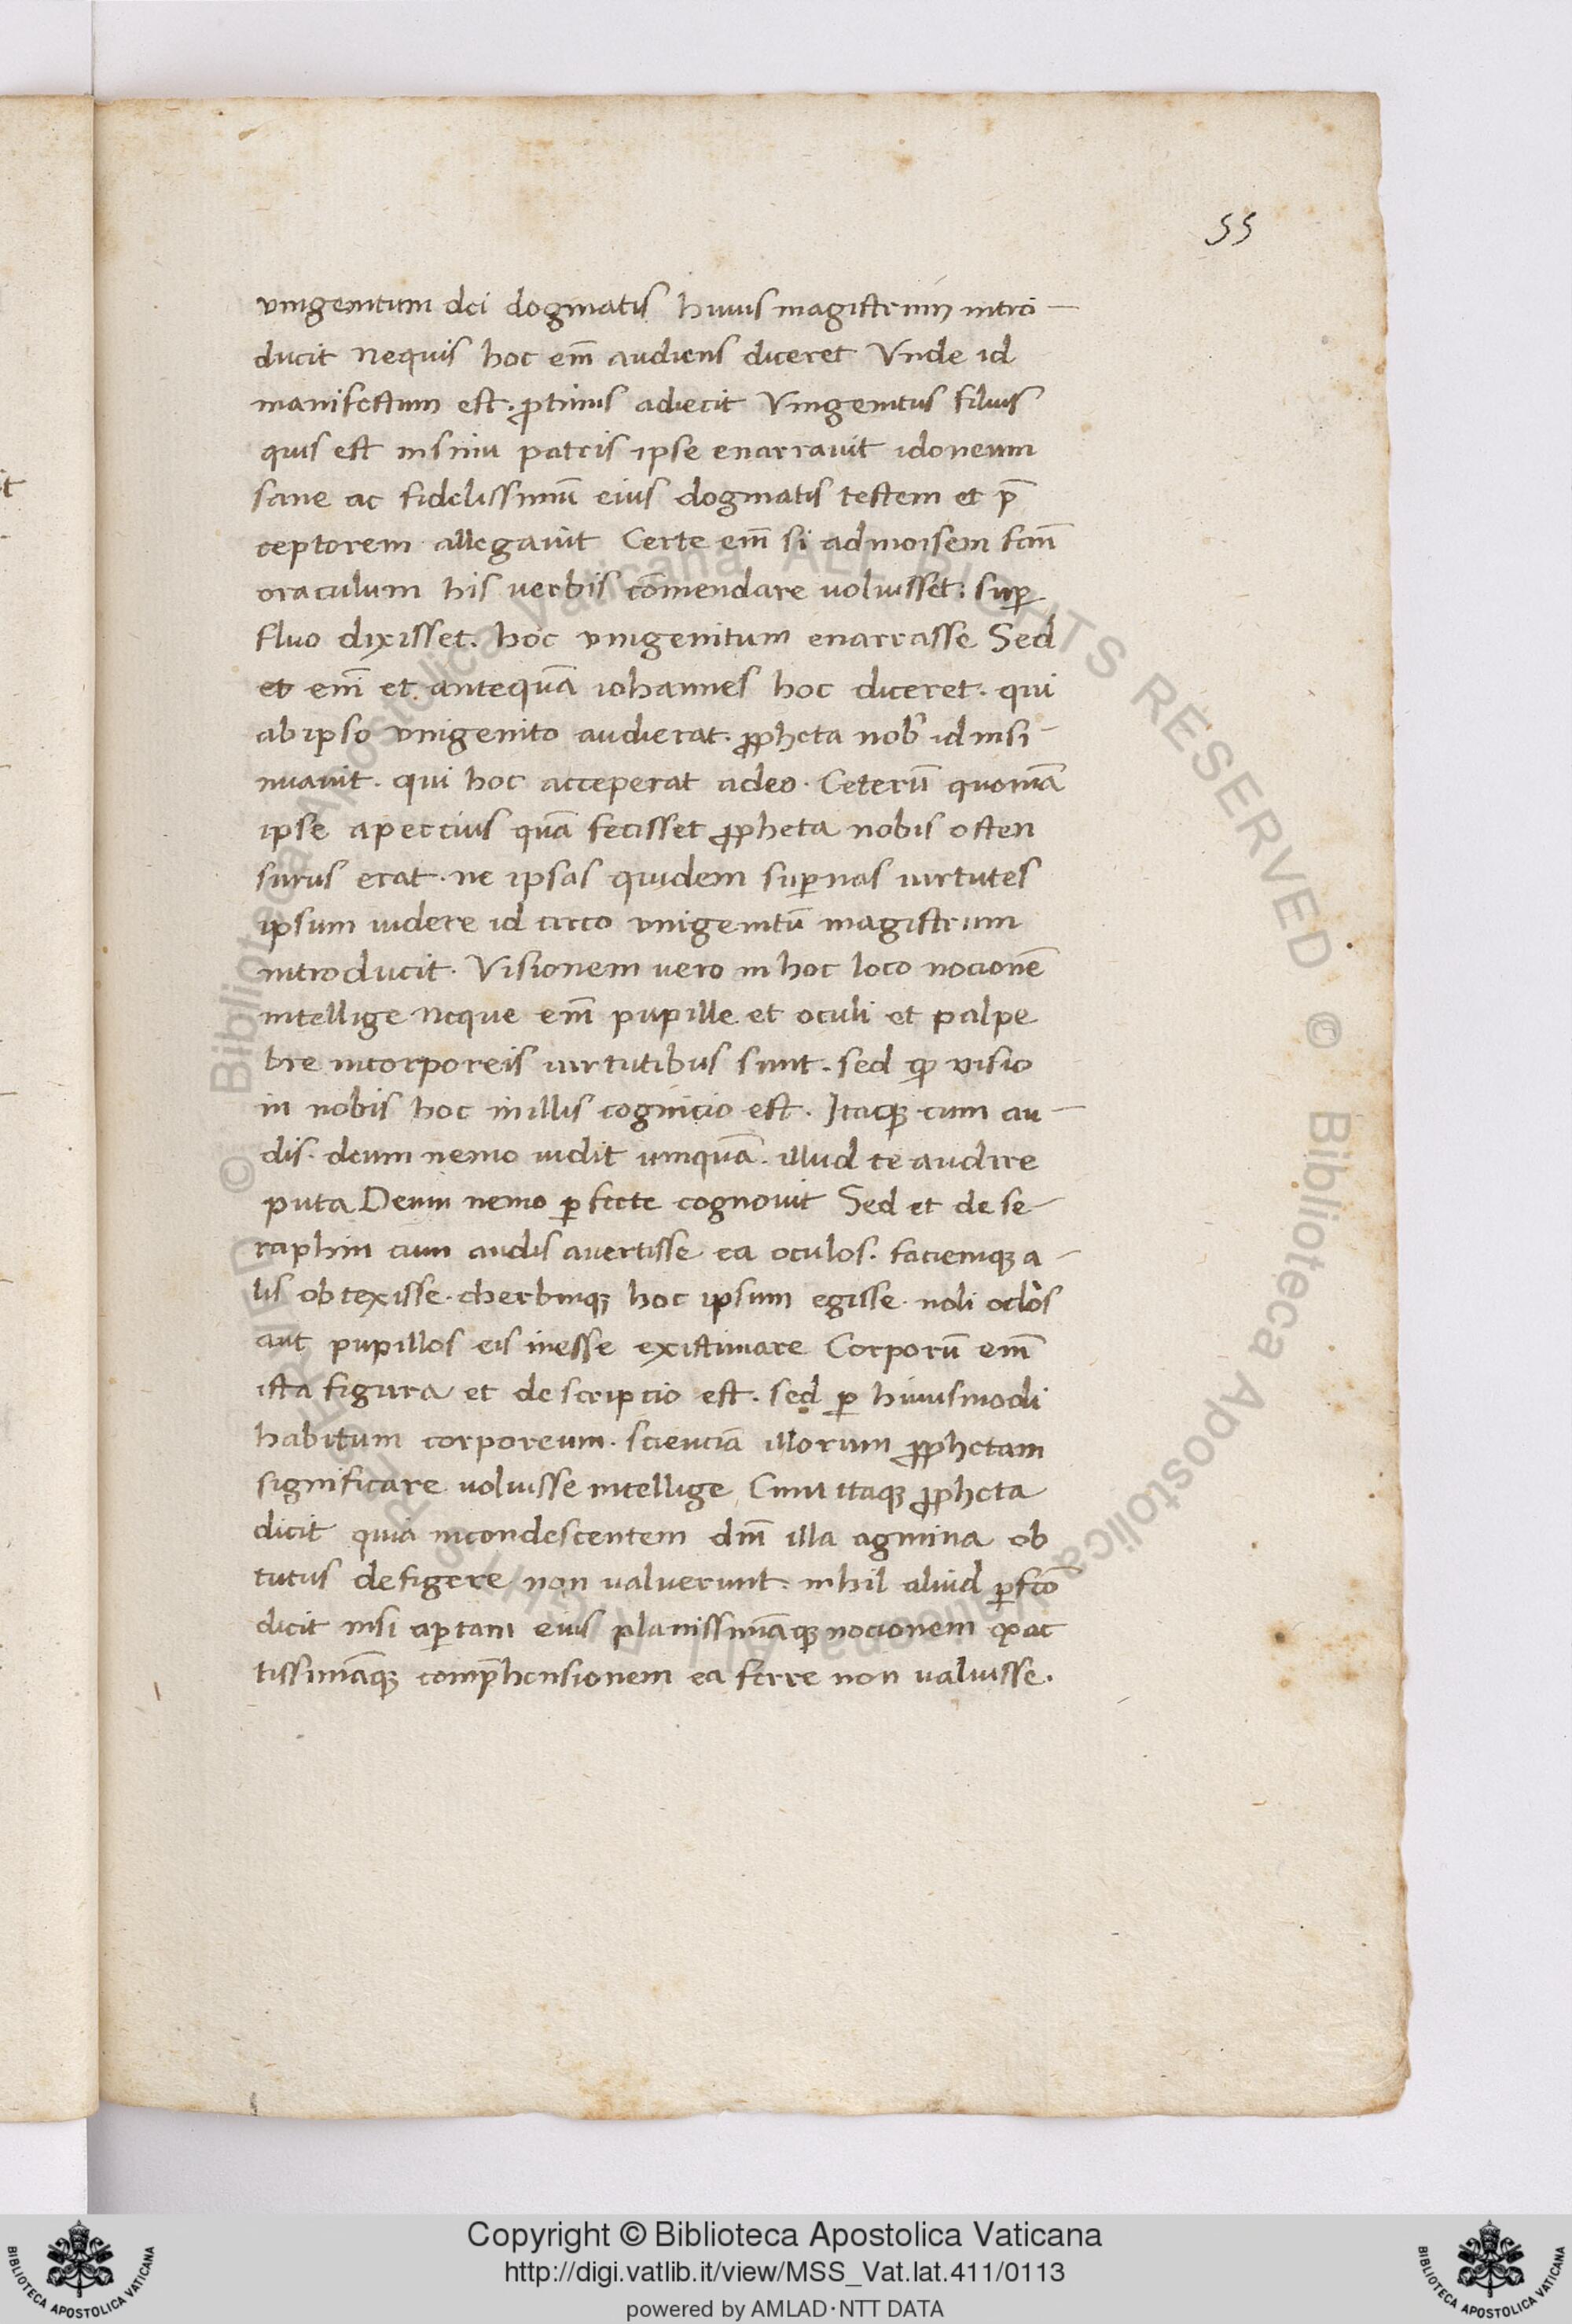 55
vnigenitum dei dogmatis huius magistrum intro-
ducit Nequis hoc em̄ audiens diceret Vnde id
manifestum est. ꝓtinus adiecit Vnigenitus filius
quis est insinu patris ipse enarravit idoneum
sane ac fidelissimū eius dogmatis testem et p̄
ceptorem allegavit Certe em̄ si admoisem
oraculum his verbis cōmendare voluisset: suꝑ
fluo dixisset. hoc vnigenitum enarrasse Sed
et em̄ et antequā iohannes hoc diceret. qui
abipso vnigenito audierat. ꝓpheta nob̄ idinsi-
nuavit. qui hoc acceperat adeo. Ceterū quoniā
ipse apercius quā fecisset ꝓpheta nobis osten
surus erat. ne ipsas quidem suꝑnas virtutes
ipsum videre id circo vnigenitū magistrum
introducit. Visionem vero in hoc loco nocionē
intellige Neque em̄ pupille et oculi et palpe
bre incorporeis virtutibus sunt. sed ꝙ visio
in nobis hoc inillis cognicio est. Itaqꝫ cum au-
dis. deum nemo vidit umquā. illud te audire
puta Deum nemo ꝑfecte cognovit Sed et de se-
raphin cum audis avertisse ea oculos. faciemqꝫ a-
lis obtexisse. cherbinqꝫ hoc ipsum egisse. noli oclōs
aut pupillos eis inesse existimare Corporū em̄
ista figura et descripcio est. sed ꝑ huiusmodi
habitum corporeum. scienciā illorum ꝓphetam
significare voluisse intellige Cum itaqꝫ ꝓpheta
dicit quia incondescentem dm̄ illa agmina ob
tutus defigere non valverunt. nihil aliud ꝑfcō
dicit nisi aꝑtam eius planissimāqꝫ nocionem exac
tissimāqꝫ comp̄hensionem ea ferre non valuisse.
© Biblioteca Apostolica Vaticana ALL RIGHTS RESERVED © Biblioteca Apostolica Vaticana ALL RIGHTS RESERVED
Copyright © Biblioteca Apostolica Vaticana
http://digi.vatlib.it/view/MSS_Vat.lat.411/0113
powered by AMLAD·NTT DATA
BIBLIOTECA APOSTOLICA VATICANA
BIBLIOTECA APOSTOLICA VATICANA